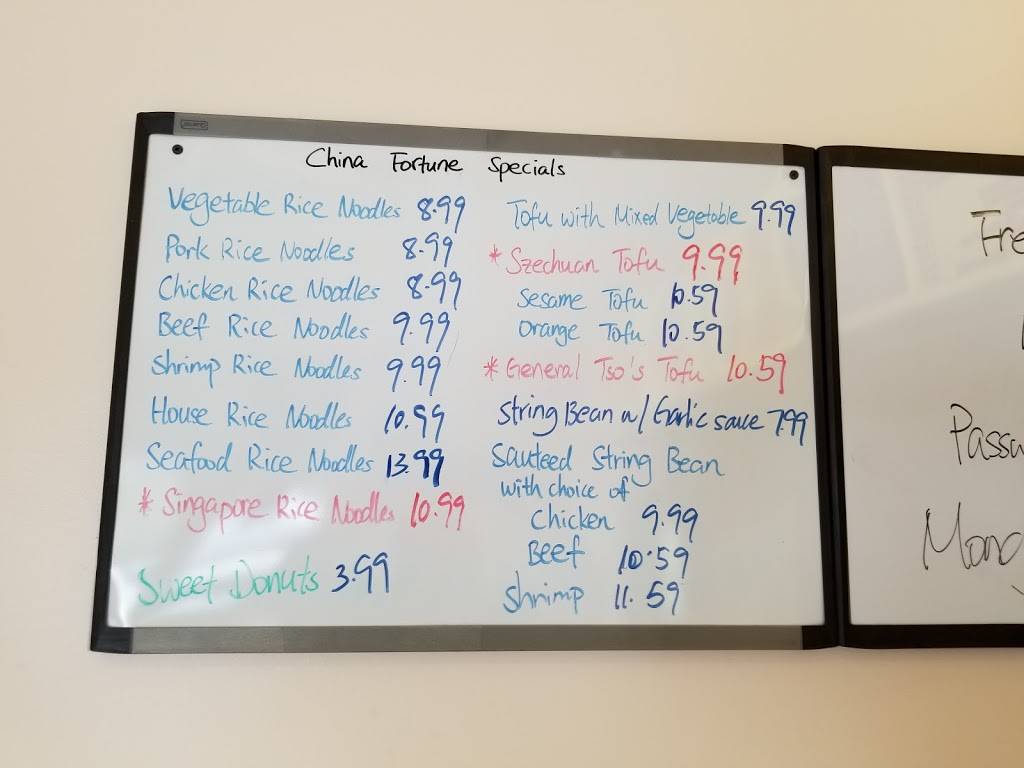 China Fortune Specials
Vegetable Rice Noodles 8.99
Pork Rice Noodles 8.99
Chicken Rice Noodles 8.99
Beef Rice Noodles 9.99
Shrimp Rice Noodles 9.99
House Rice Noodles 10.99
Seafood Rice Noodles 13.99
* Singapore Rice Noodles 10.99
Sweet Donuts 3.99
Tofu with Mixed Vegetable 9.99
* Szechuan Tofu 9.99
Sesame Tofu 10.59
Orange Tofu 10.59
* General Tso's Tofu 10.59
String Bean w/ Garlic sauce 7.99
Sauteed String Bean
with choice of
Chicken 9.99
Beef 10.59
Shrimp 11.59
Fre
Passw
Mond